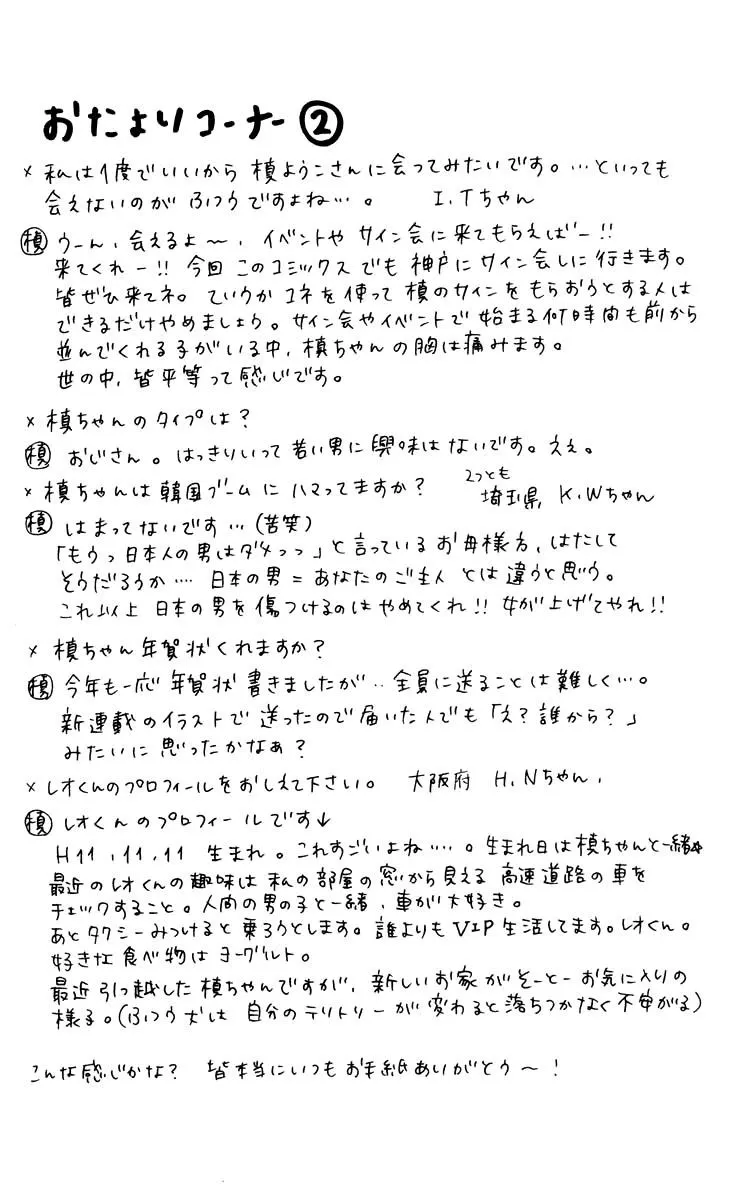 おたよりコーナー②
× 私は1度でいいから 槙ようこさんに会ってみたいです。…といっても
会えないのが ふつうですよね…。 I.Tちゃん
槙 うーん、会えるよ〜、イベントや サイン会に来てもらえばー!!
来てくれー!! 今回 このコミックス でも 神戸に サイン会しに行きます。
皆ぜひ来てネ。ていうか コネを使って 槙のサインを もらおうとする人は
できるだけやめましょう。サイン会やイベントで 始まる何時間も前から
並んでくれる子がいる中、槙ちゃんの胸は痛みます。
世の中、皆平等って感じです。
× 槙ちゃんのタイプは?
槙 おじさん。はっきりいって 若い男に興味はないです。ええ。
× 槙ちゃんは韓国ブームに ハマってますか? 2つとも 埼玉県 K.Wちゃん
槙 はまってないです…(苦笑)
「もうっ日本人の男はダメっっ」と言っている お母様方、はたして
そうだろうか…. 日本の男=あなたのご主人 とは違うと思う。
これ以上 日本の男を傷つけるのは やめてくれ!! 女が上げてやれ!!
× 槙ちゃん年賀状くれますか?
槙 今年も一応 年賀状 書きましたが‥全員に送ることは難しく…。
新連載のイラストで 送ったので届いた人でも「え?誰から?」
みたいに 思ったかなぁ?
× レオくんのプロフィールをおしえて下さい。 大阪府 H.Nちゃん.
槙 レオくんのプロフィールです↓
H11.11.11 生まれ。これすごいよね….。生まれ日は槙ちゃんと一緒☆
最近のレオくんの趣味は 私の部屋の窓から見える 高速道路の車を
チェックすること。人間の男の子と一緒、車が大好き。
あとタクシーみつけると乗ろうとします。誰よりもVIP生活してます。レオくん。
好きな食べ物は ヨーグルト。
最近引っ越しした 槙ちゃんですが、新しいお家がそーとー お気に入りの
様子。(ふつう犬は 自分のテリトリーが 変わると落ちつかなく 不安がる)
こんな感じかな? 皆本当にいつもお手紙ありがとう〜!